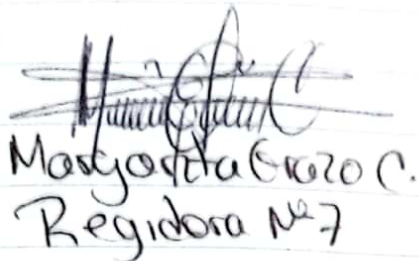 Margarita Erazo C.
Regidora Nº 7